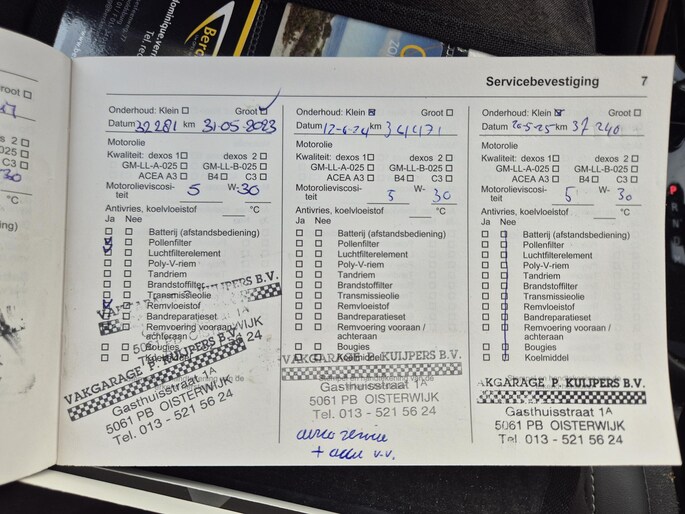 Servicebevestiging 7
Onderhoud: Klein Groot
Datum 32281 km 31-05-2023
Motorolie
Kwaliteit: dexos 1 dexos 2
GM-LL-A-025 GM-LL-B-025
ACEA A3 B4 C3
Motorolieviscosi- 5 W-30
teit
Antivries, koelvloeistof °C
Ja Nee
Batterij (afstandsbediening)
Pollenfilter
Luchtfilterelement
Poly-V-riem
Tandriem
Brandstoffilter
Transmissieolie
Remvloeistof
Bandreparatieset
Remvoering vooraan /
achteraan
Bougies
Koelmiddel
VAKGARAGE P. KUIJPERS B.V.
Gasthuisstraat 1A
5061 PB OISTERWIJK
Tel. 013 - 521 56 24
Onderhoud: Klein Groot
Datum 12-6-24 km
Motorolie
Kwaliteit: dexos 1 dexos 2
GM-LL-A-025 GM-LL-B-025
ACEA A3 B4 C3
Motorolieviscosi- 5 W-30
teit
Antivries, koelvloeistof °C
Ja Nee
Batterij (afstandsbediening)
Pollenfilter
Luchtfilterelement
Poly-V-riem
Tandriem
Brandstoffilter
Transmissieolie
Remvloeistof
Bandreparatieset
Remvoering vooraan /
achteraan
Bougies
Koelmiddel
VAKGARAGE P. KUIJPERS B.V.
Gasthuisstraat 1A
5061 PB OISTERWIJK
Tel. 013 - 521 56 24
airco service
+ accu v.v.
Onderhoud: Klein Groot
Datum 20-5-25 km 37240
Motorolie
Kwaliteit: dexos 1 dexos 2
GM-LL-A-025 GM-LL-B-025
ACEA A3 B4 C3
Motorolieviscosi- 5 W-30
teit
Antivries, koelvloeistof °C
Ja Nee
Batterij (afstandsbediening)
Pollenfilter
Luchtfilterelement
Poly-V-riem
Tandriem
Brandstoffilter
Transmissieolie
Remvloeistof
Bandreparatieset
Remvoering vooraan /
achteraan
Bougies
Koelmiddel
VAKGARAGE P. KUIJPERS B.V.
Gasthuisstraat 1A
5061 PB OISTERWIJK
Tel. 013 - 521 56 24